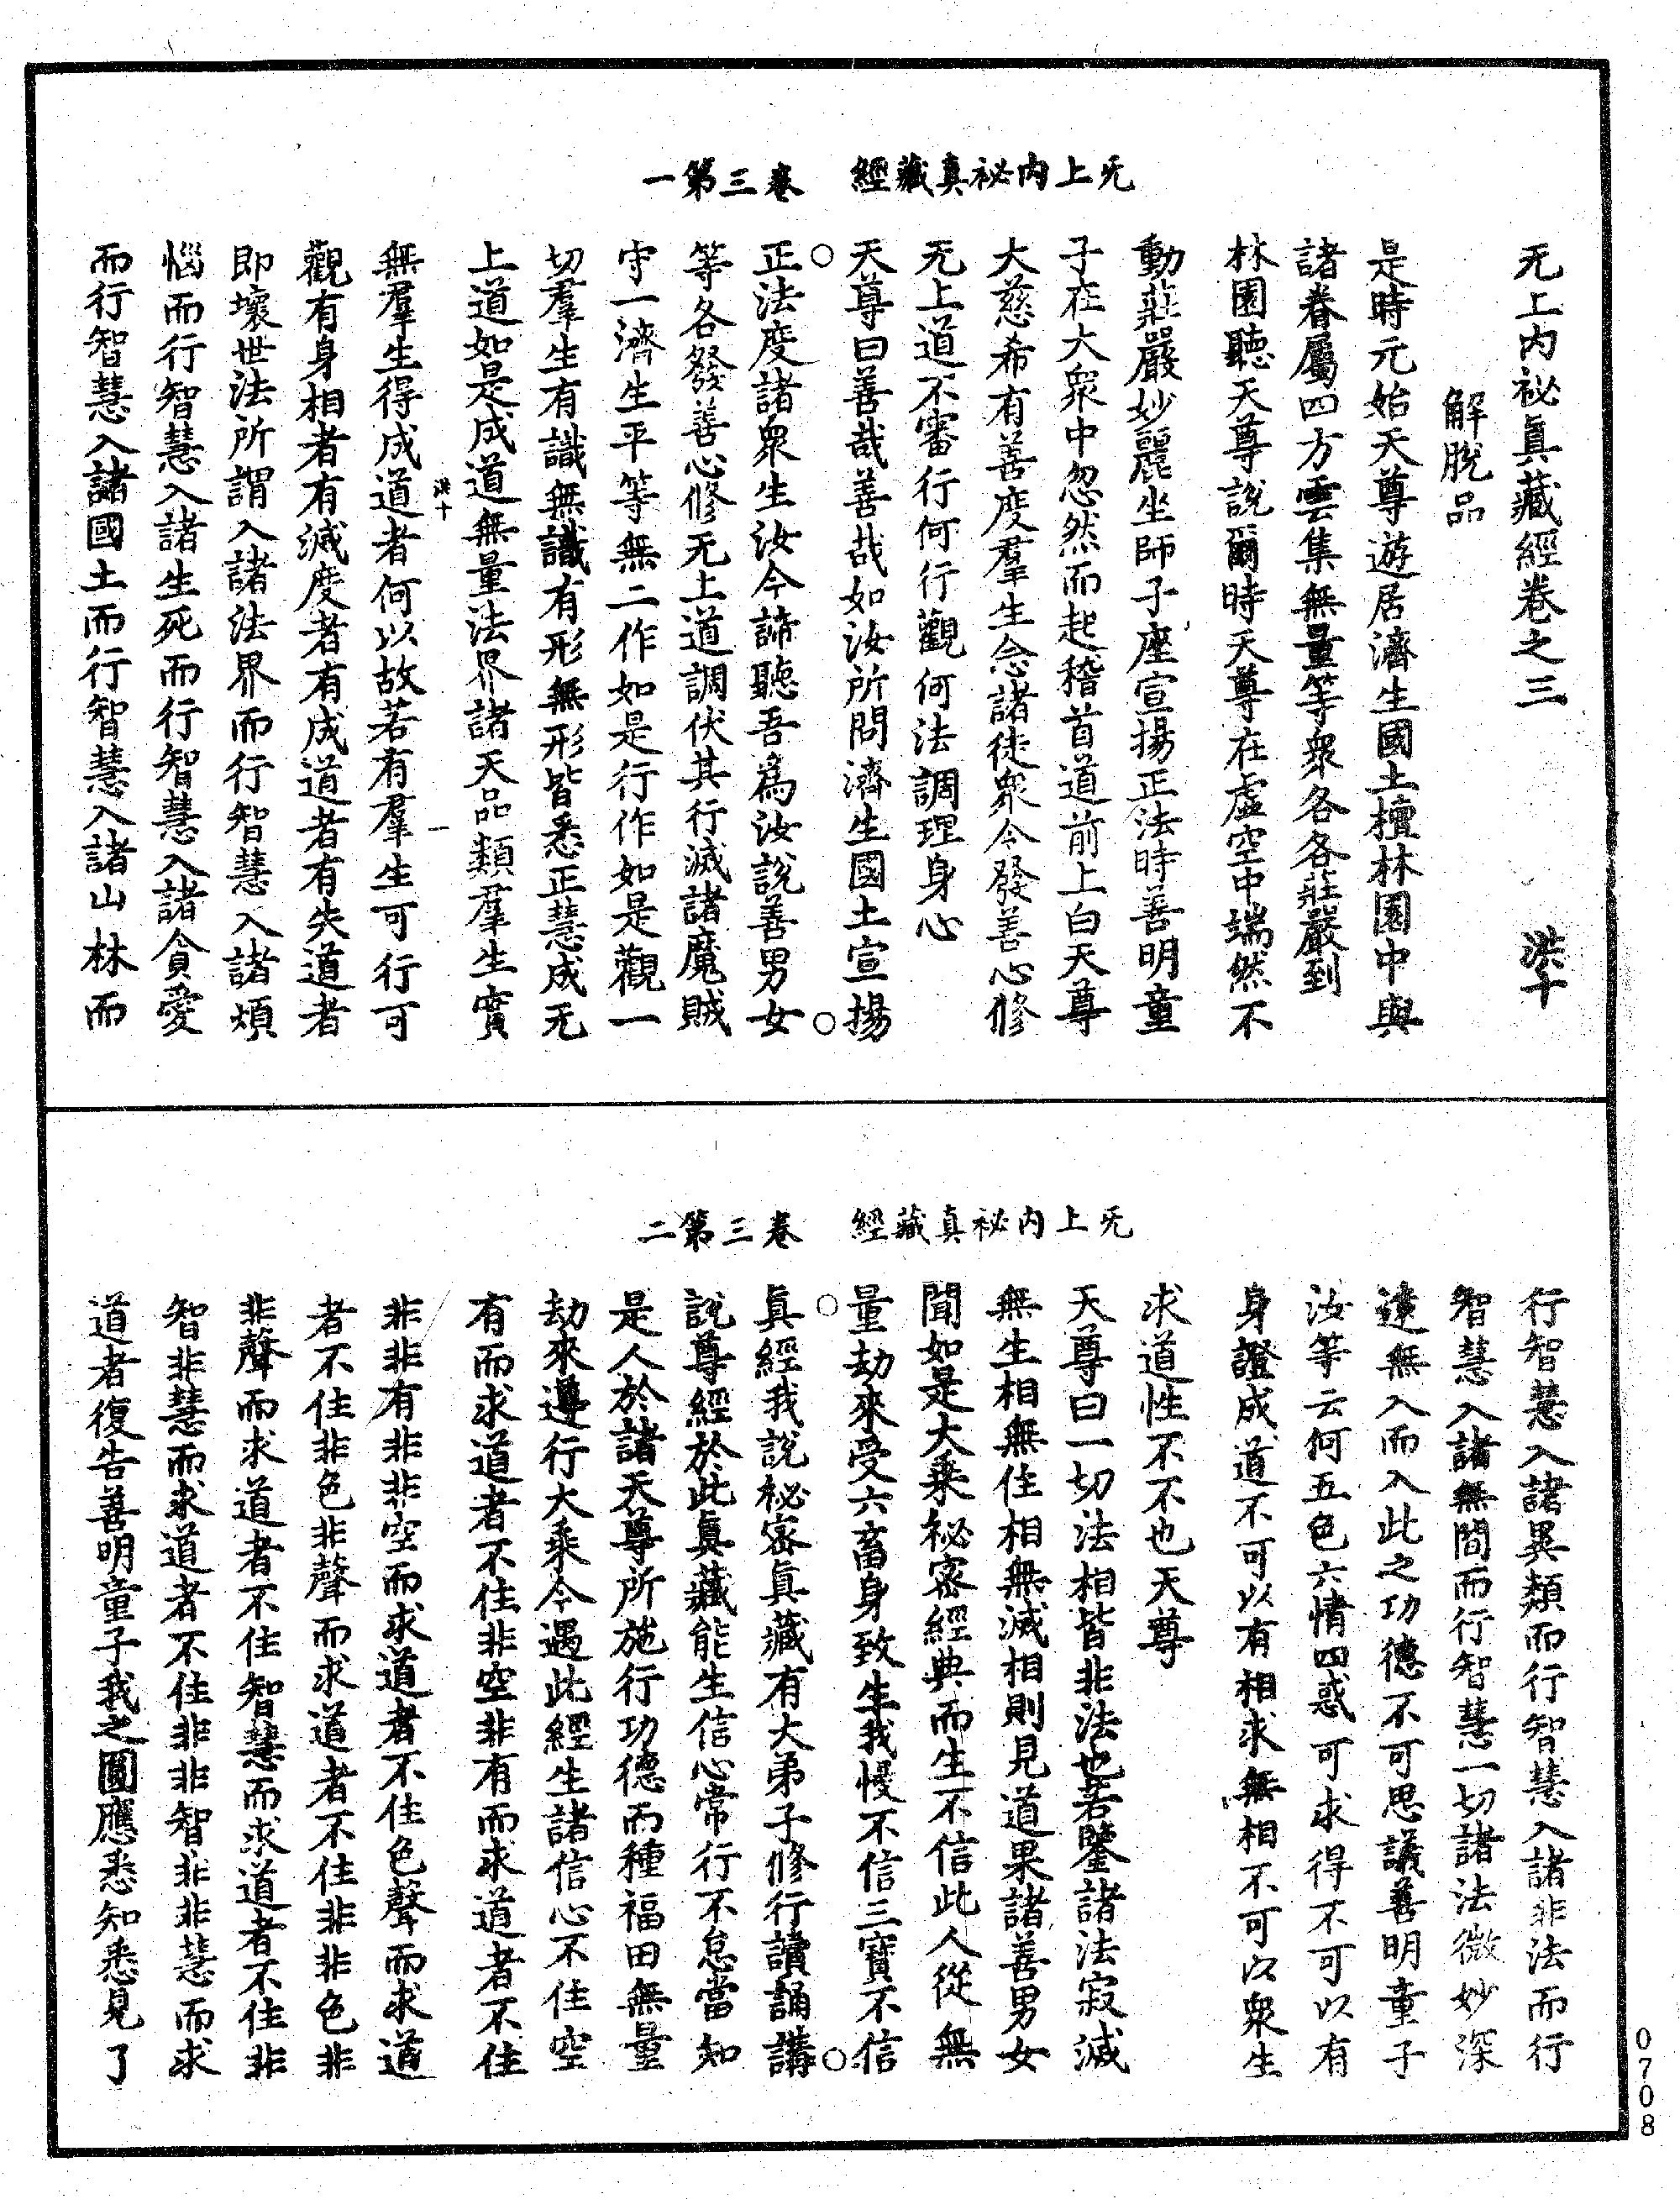 无上內祕真藏經　卷三第一
无上內祕眞藏經卷之三　洪十
解脫品
是時元始天尊遊居濟生國土檀林園中與
諸眷屬四方雲集無量等眾各各莊嚴到
林園聽天尊說爾時天尊在虛空中端然不
動莊嚴妙麗坐師子座宣揚正法時善明童
子在大眾中忽然而起稽首道前上白天尊
大慈希有善度羣生念諸徒眾令發善心修
无上道不審行何行觀何法調理身心
天尊曰善哉善哉如汝所問濟生國土宣揚
正法度諸眾生汝今諦聽吾為汝說善男女
等各發善心修无上道調伏其行滅諸魔賊
守一濟生平等無二作如是行作如是觀一
切羣生有識無識有形無形皆悉正慧成无
上道如是成道無量法界諸天品類羣生實
洪十　一
無羣生得成道者何以故若有羣生可行可
觀有身相者有滅度者有成道者有失道者
即壞世法所謂入諸法界而行智慧入諸煩
惱而行智慧入諸生死而行智慧入諸貪愛
而行智慧入諸國土而行智慧入諸山林而
无上內祕真藏經　卷三第二
行智慧入諸異類而行智慧入諸非法而行
智慧入諸無間而行智慧一切諸法微妙深
遠無入而入此之功德不可思議善明童子
汝等云何五色六情四惑可求得不可以有
身證成道不可以有相求無相不可以眾生
求道性不不也天尊
天尊曰一切法相皆非法也若鑒諸法寂滅
無生相無住相無滅相則見道果諸善男女
聞如是大乘祕密經典而生不信此人從無
量劫來受六畜身致生我慢不信三寶不信
眞經我說祕密眞藏有大弟子修行讀誦講
說尊經於此眞藏能生信心常行不怠當知
是人於諸天尊所施行功德而種福田無量
劫來遵行大乘今遇此經生諸信心不住空
有而求道者不住非空非有而求道者不住
非非有非非空而求道者不住色聲而求道
者不住非色非聲而求道者不住非非色非
非聲而求道者不住智慧而求道者不住非
智非慧而求道者不住非非智非非慧而求
道者復告善明童子我之圓應悉知悉見了
0708